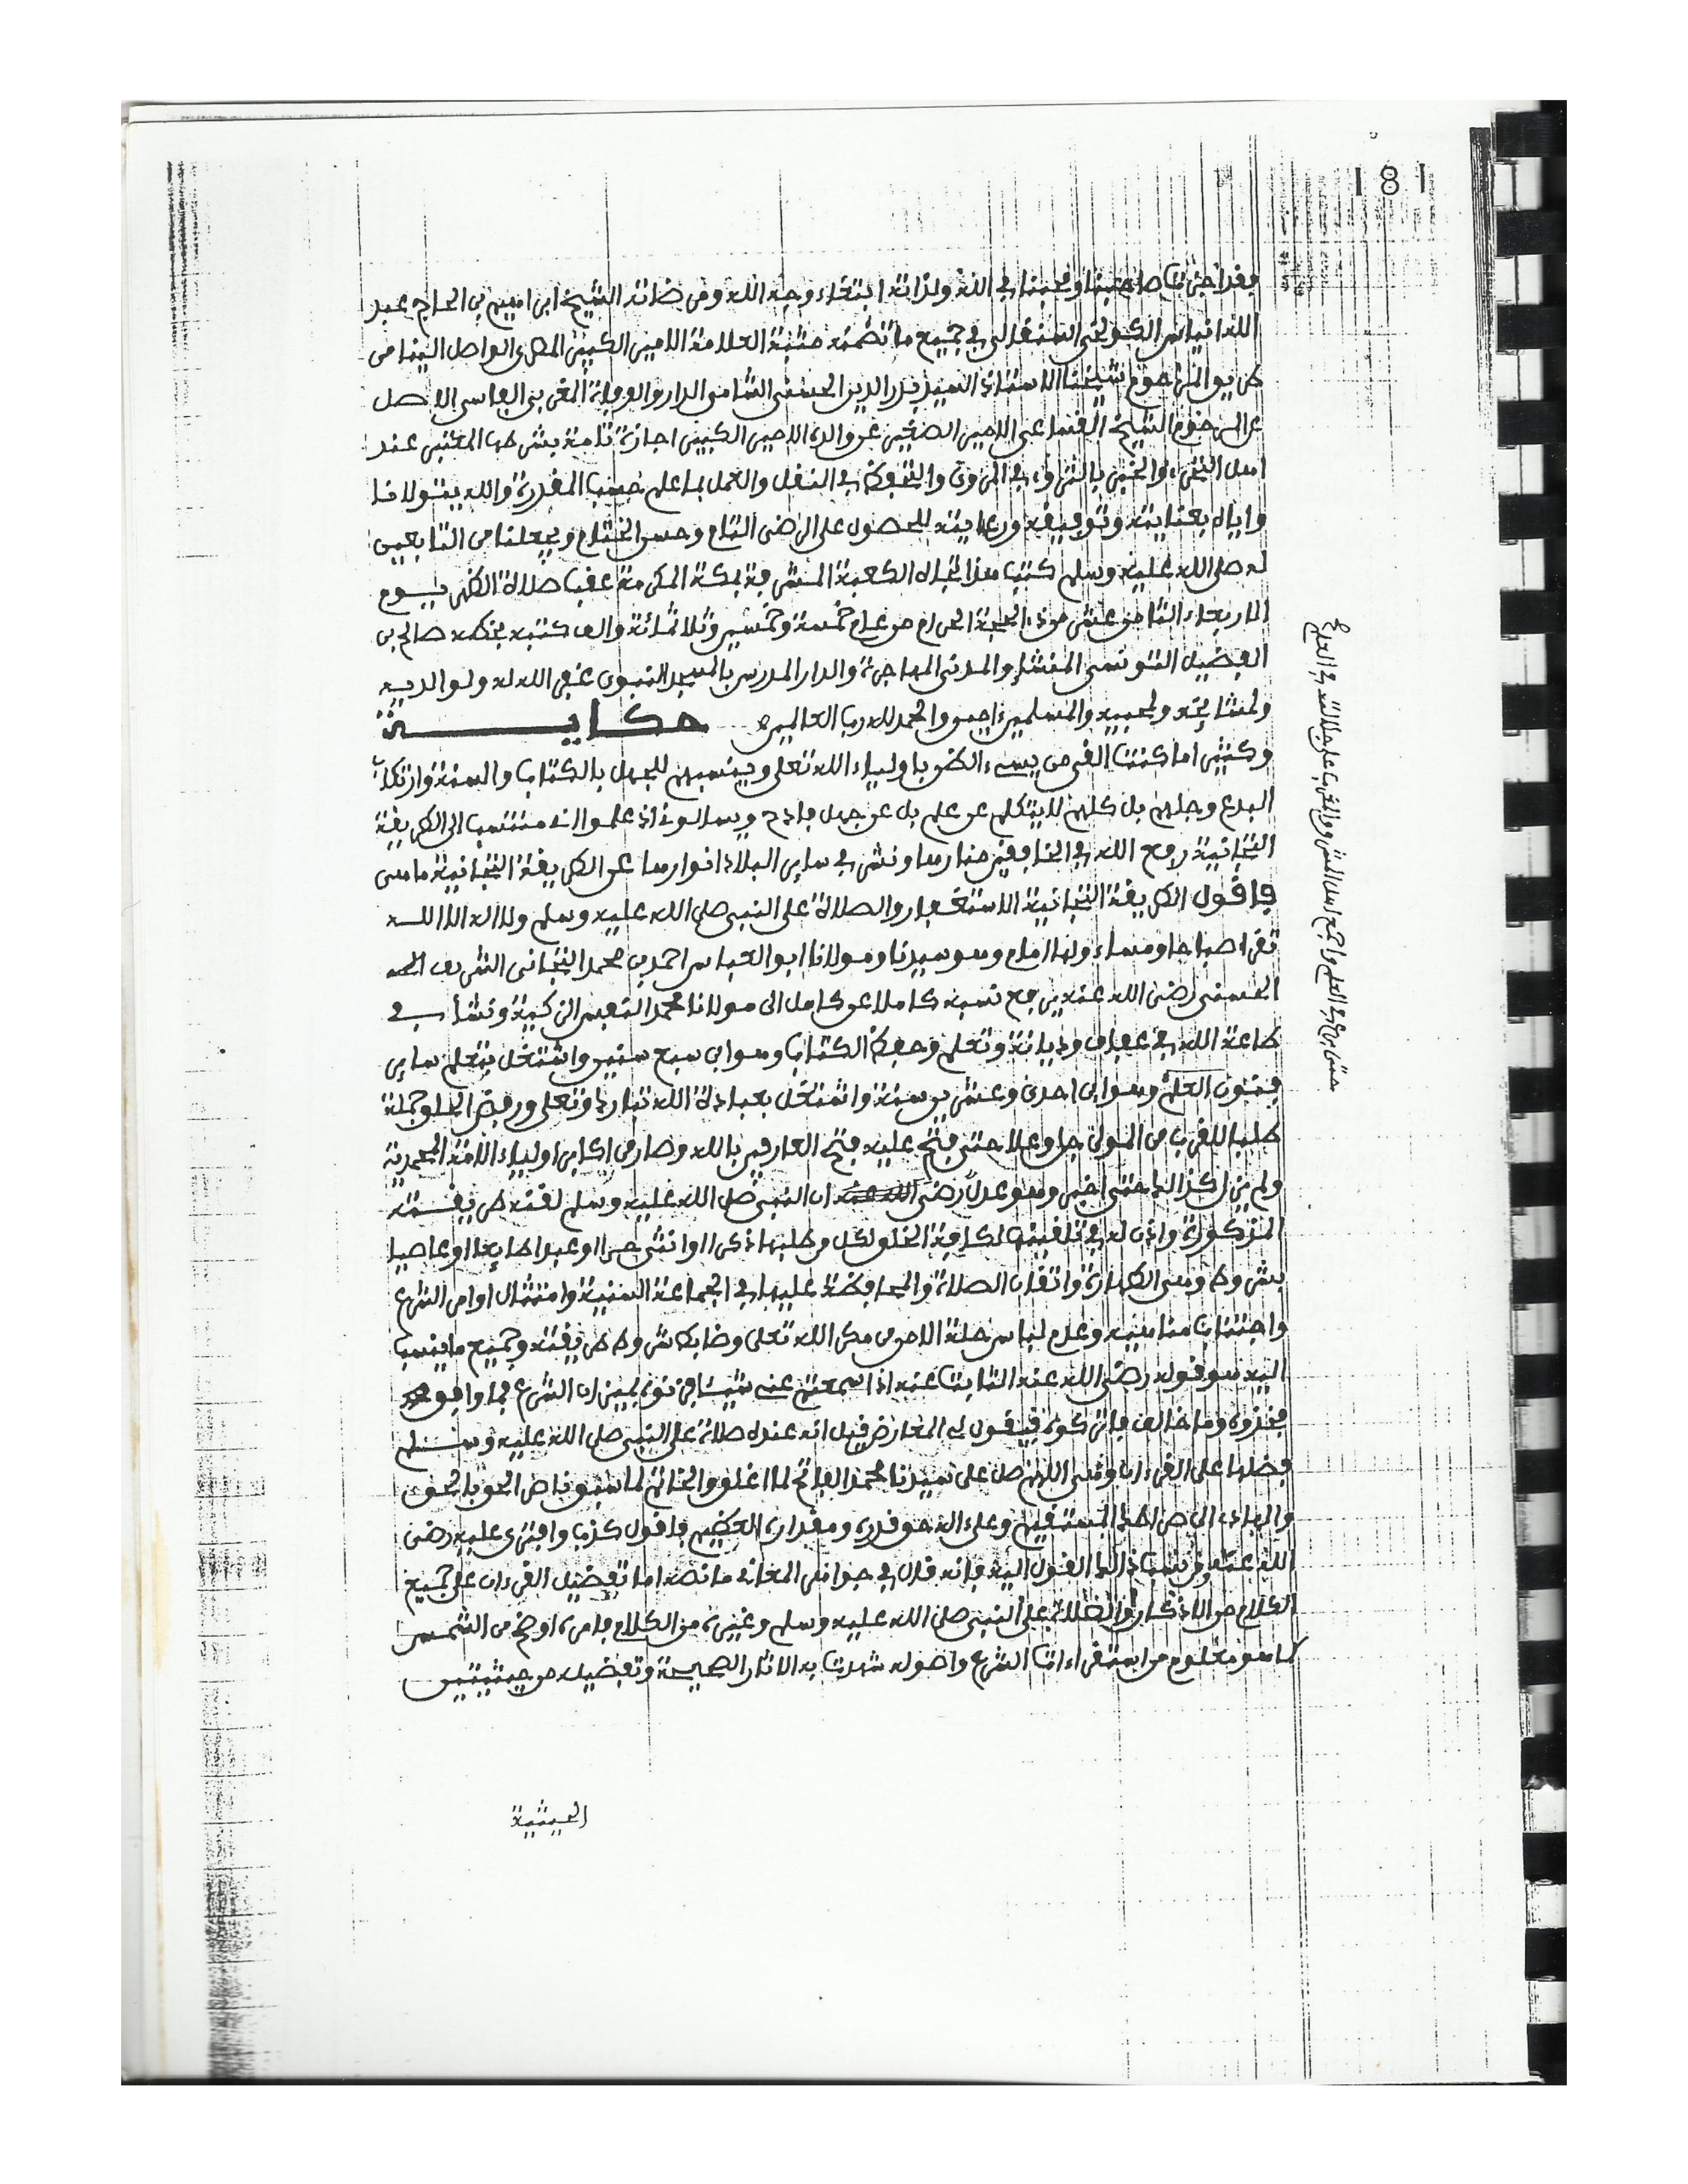 181
فقد اجزت صاحبنا ومحبنا في الله ولذاته ابتغاء وجه الله ومرضاته الشيخ ابراهيم بن الحاج عبد
الله انياس الكولخي السنغالي في جميع ما تضمنه ثبت العلامة الامير الكبير المكي الواصل الينا من
طريق المرحوم شيخنا الاستاذ السيد بدر الدين الحسني الشامي الدار والوفاة المغربي الفاسي الاصل
عن المرحوم الشيخ السقا عن الامير الصغير عن والده الامير الكبير اجازة تامة بشرطها المعتبر عند
اهل التقى والخير بالتهاوه في المروي والتيقظ في النقل والعمل بما علم حسب المقدرة والله يتولانا
واياه بعنايته وتوفيقه ورعايته للحصول على الرضى التام وحسن الختام ويجعلنا من التابعين
له صلى الله عليه وسلم كتب هذا تجاه الكعبة المشرفة بمكة المكرمة عقب صلاة الظهر يوم
الاربعاء الثامن عشر من ذي الحجة الحرام من عام خمسة وخمسين وثلاثمائة والف كتبه بخطه صالح بن
الفضيل التونسي المنشإ والمدني المهاجرة والدار المدرس بالمسجد النبوي غفر الله له ولوالديه
ولمشائخه ولمحبيه والمسلمين اجمعين والحمد لله رب العالمين حكايـــــــة
وكثيرا ما كنت القى من يسيء الظن باولياء الله تعلى وينسبهم للجهل بالكتاب والسنة وارتكاب
البدع وجلهم بل كلهم لا يتكلم عن علم بل عن جهل فادح ويسالونني اذ علموا اني منتسب الى الطريقة
التجانية رفع الله في الخافقين منارها ونشر في سائر البلاد انوارها عن الطريقة التجانية ما هي
فاقول الطريقة التجانية الاستغفار والصلاة على النبي صلى الله عليه وسلم ولا اله الا الله
تقرا صباحا ومساء ولها امام وهو سيدنا ومولانا ابو العباس احمد بن محمد التجاني الشريف الحسـ
الحسني رضي الله عنه يرجع نسبه كاملا عن كامل الى مولانا محمد النفس الزكية ونشأ في
طاعة الله في عفاف وديانة وتعلم وحفظ الكتاب وهو ابن سبع سنين واشتغل بتعلم سائر
فنون العلم وهو ابن احدى وعشرين سنة واشتغل بعبادة الله تبارك وتعلى ورفض الخلو جملة
طلبا للقرب من المولى جل وعلا حتى فتح عليه فتح العارفين بالله وصار من اكابر اولياء الامة المحمدية
ولم يزل كذلك حتى اخبر وهو عدل رضي الله عنه ان النبي صلى الله عليه وسلم لقنه طريقته
المذكورة واذن له في تلقينها لكافة الخلق لكل من طلبها ذكرا او انثى حرا او عبدا طايعا او عاصيا
بشروط وهي الطهارة واتقان الصلاة والمحافظة عليها في الجماعة السنية وامتثال اوامر الشرع
واجتناب مناهيه وعدم لباس حلة الامن من مكر الله تعلى وضابط شروط طريقته وجميع ما ينسب
اليه هو قوله رضي الله عنه الثابت عنه اذا سمعتم عني شيئا فزنوه بميزان الشرع فما وافق
فخذوه وما خالف فاتركوه فيقول لي المعارض قيل انه عنده صلاة على النبي صلى الله عليه وسلم
فضلها على القرءان وهي اللهم صل على سيدنا محمد الفاتح لما اغلق والخاتم لما سبق ناصر الحق بالحق
والهادي الى صراطك المستقيم وعلى اله حق قدره ومقداره العظيم فاقول كذب وافترى عليه رضي
الله عنه من نسب ذلك القول اليه فانه قال في جواهر المعاني ما نصه اما تفضيل القرءان على جميع
الكلام من الاذكار والصلاة على النبي صلى الله عليه وسلم وغيره من الكلام فامره اوضح من الشمس
كما هو معلوم من استقراءات الشرع واصوله شهدت به الاثار الصحيحة وتفضيله من حيثيتين
الحيثية